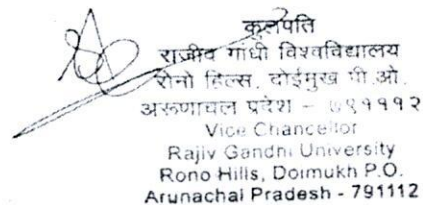 कुलपति
राजीव गांधी विश्वविद्यालय
रोनो हिल्स, दोईमुख पी.ओ.
अरूणाचल प्रदेश - ७९१११२
Vice Chancellor
Rajiv Gandhi University
Rono Hills, Doimukh P.O.
Arunachal Pradesh - 791112